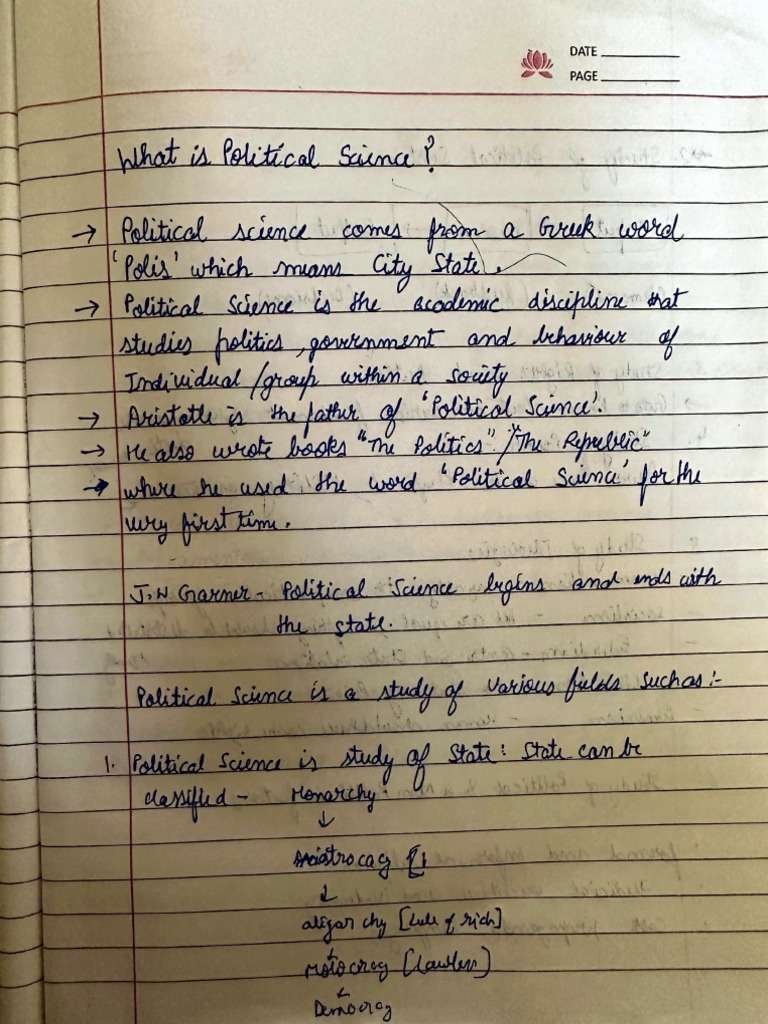 DATE
PAGE
What is Political Science?
→ Political science comes from a Greek word
'Polis' which means City State.
→ Political Science is the academic discipline that
studies politics, government and behaviour of
Individual/group within a society
→ Aristotle is the father of 'Political Science'.
→ He also wrote books "The Politics" / "The Republic"
→ where he used the word 'Political Science' for the
very first time.
J.N Garner - Political Science begins and ends with
the state.
Political Science is a study of various fields such as:-
1. Political Science is study of State: State can be
classified - Monarchy
↓
↓
oligarchy [Rule of rich]
Motocracy [lawless]
Democracy